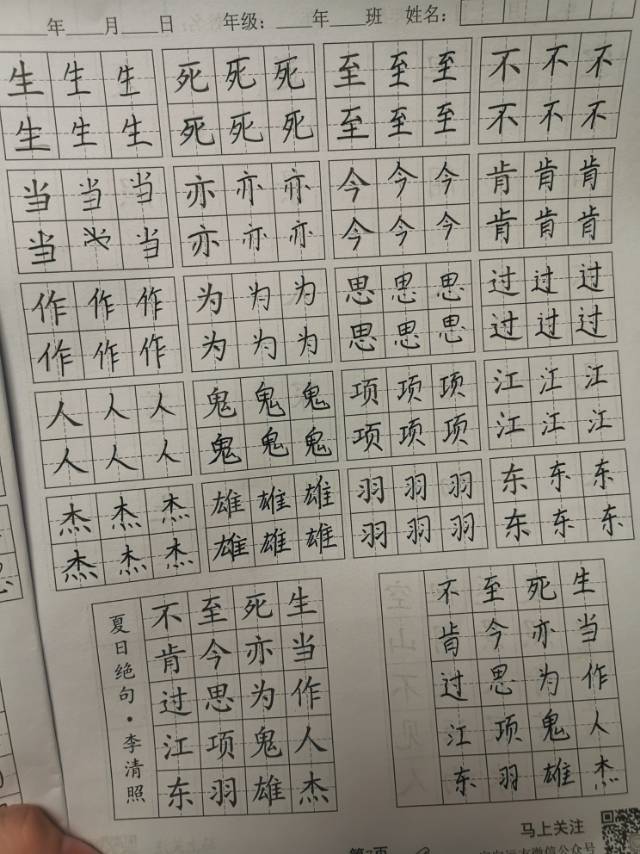 年 月 日 年级: 年 班 姓名:
生生生 死死死 至至至 不不不
生生生 死死死 至至至 不不不
当当当 亦亦亦 今今今 肯肯肯
当当当 亦亦亦 今今今 肯肯肯
作作作 为为为 思思思 过过过
作作作 为为为 思思思 过过过
人人人 鬼鬼鬼 项项项 江江江
人人人 鬼鬼鬼 项项项 江江江
杰杰杰 雄雄雄 羽羽羽 东东东
杰杰杰 雄雄雄 羽羽羽 东东东
生当作人杰
死亦为鬼雄
至今思项羽
不肯过江东
夏日绝句·李清照
生当作人杰
死亦为鬼雄
至今思项羽
不肯过江东
空山不见人
马上关注